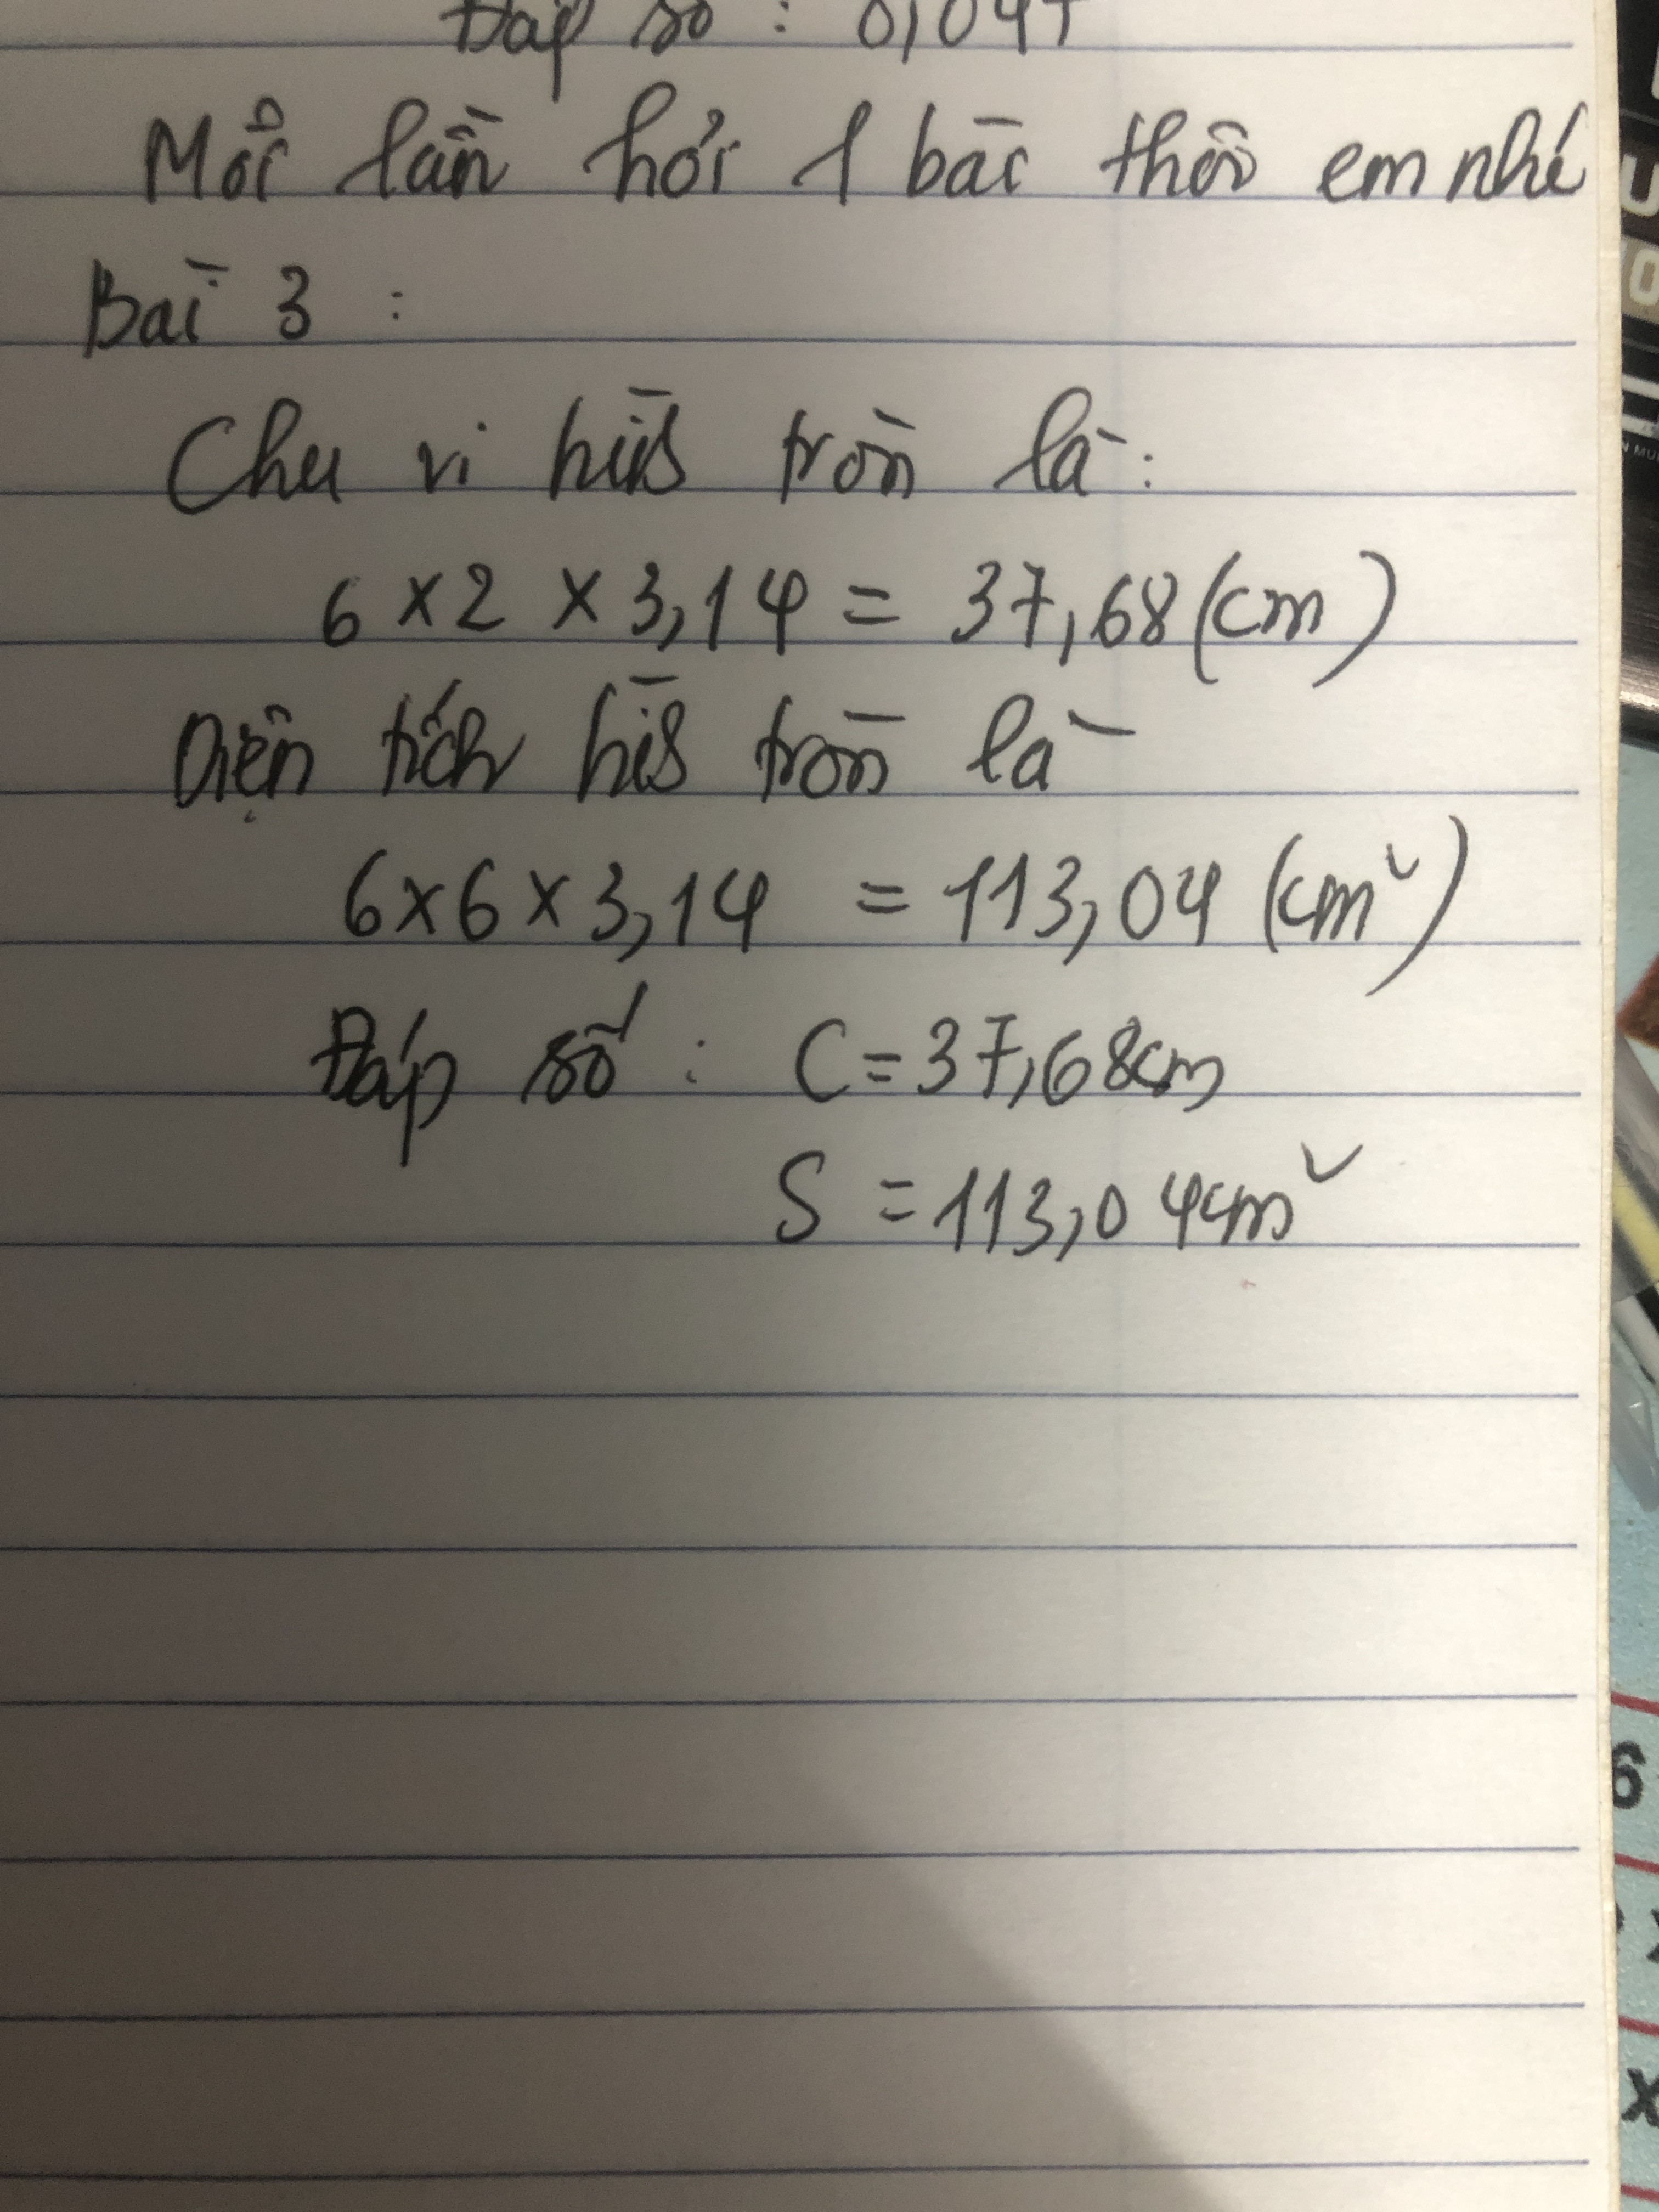 Đáp số : 0,04
Mỗi lần hỏi 1 bài thôi em nhé
Bài 3 :
Chu vi hình tròn là :
6 × 2 × 3,14 = 37,68 (cm)
Diện tích hình tròn là
6 × 6 × 3,14 = 113,04 (cm²)
Đáp số : C = 37,68cm
S = 113,04cm²
6
x